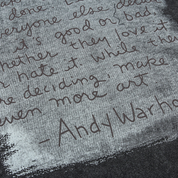 done
everyone else deci
it's good or bad,
whether they love it
or hate it. While they
are deciding, make
even more art
- Andy Warho